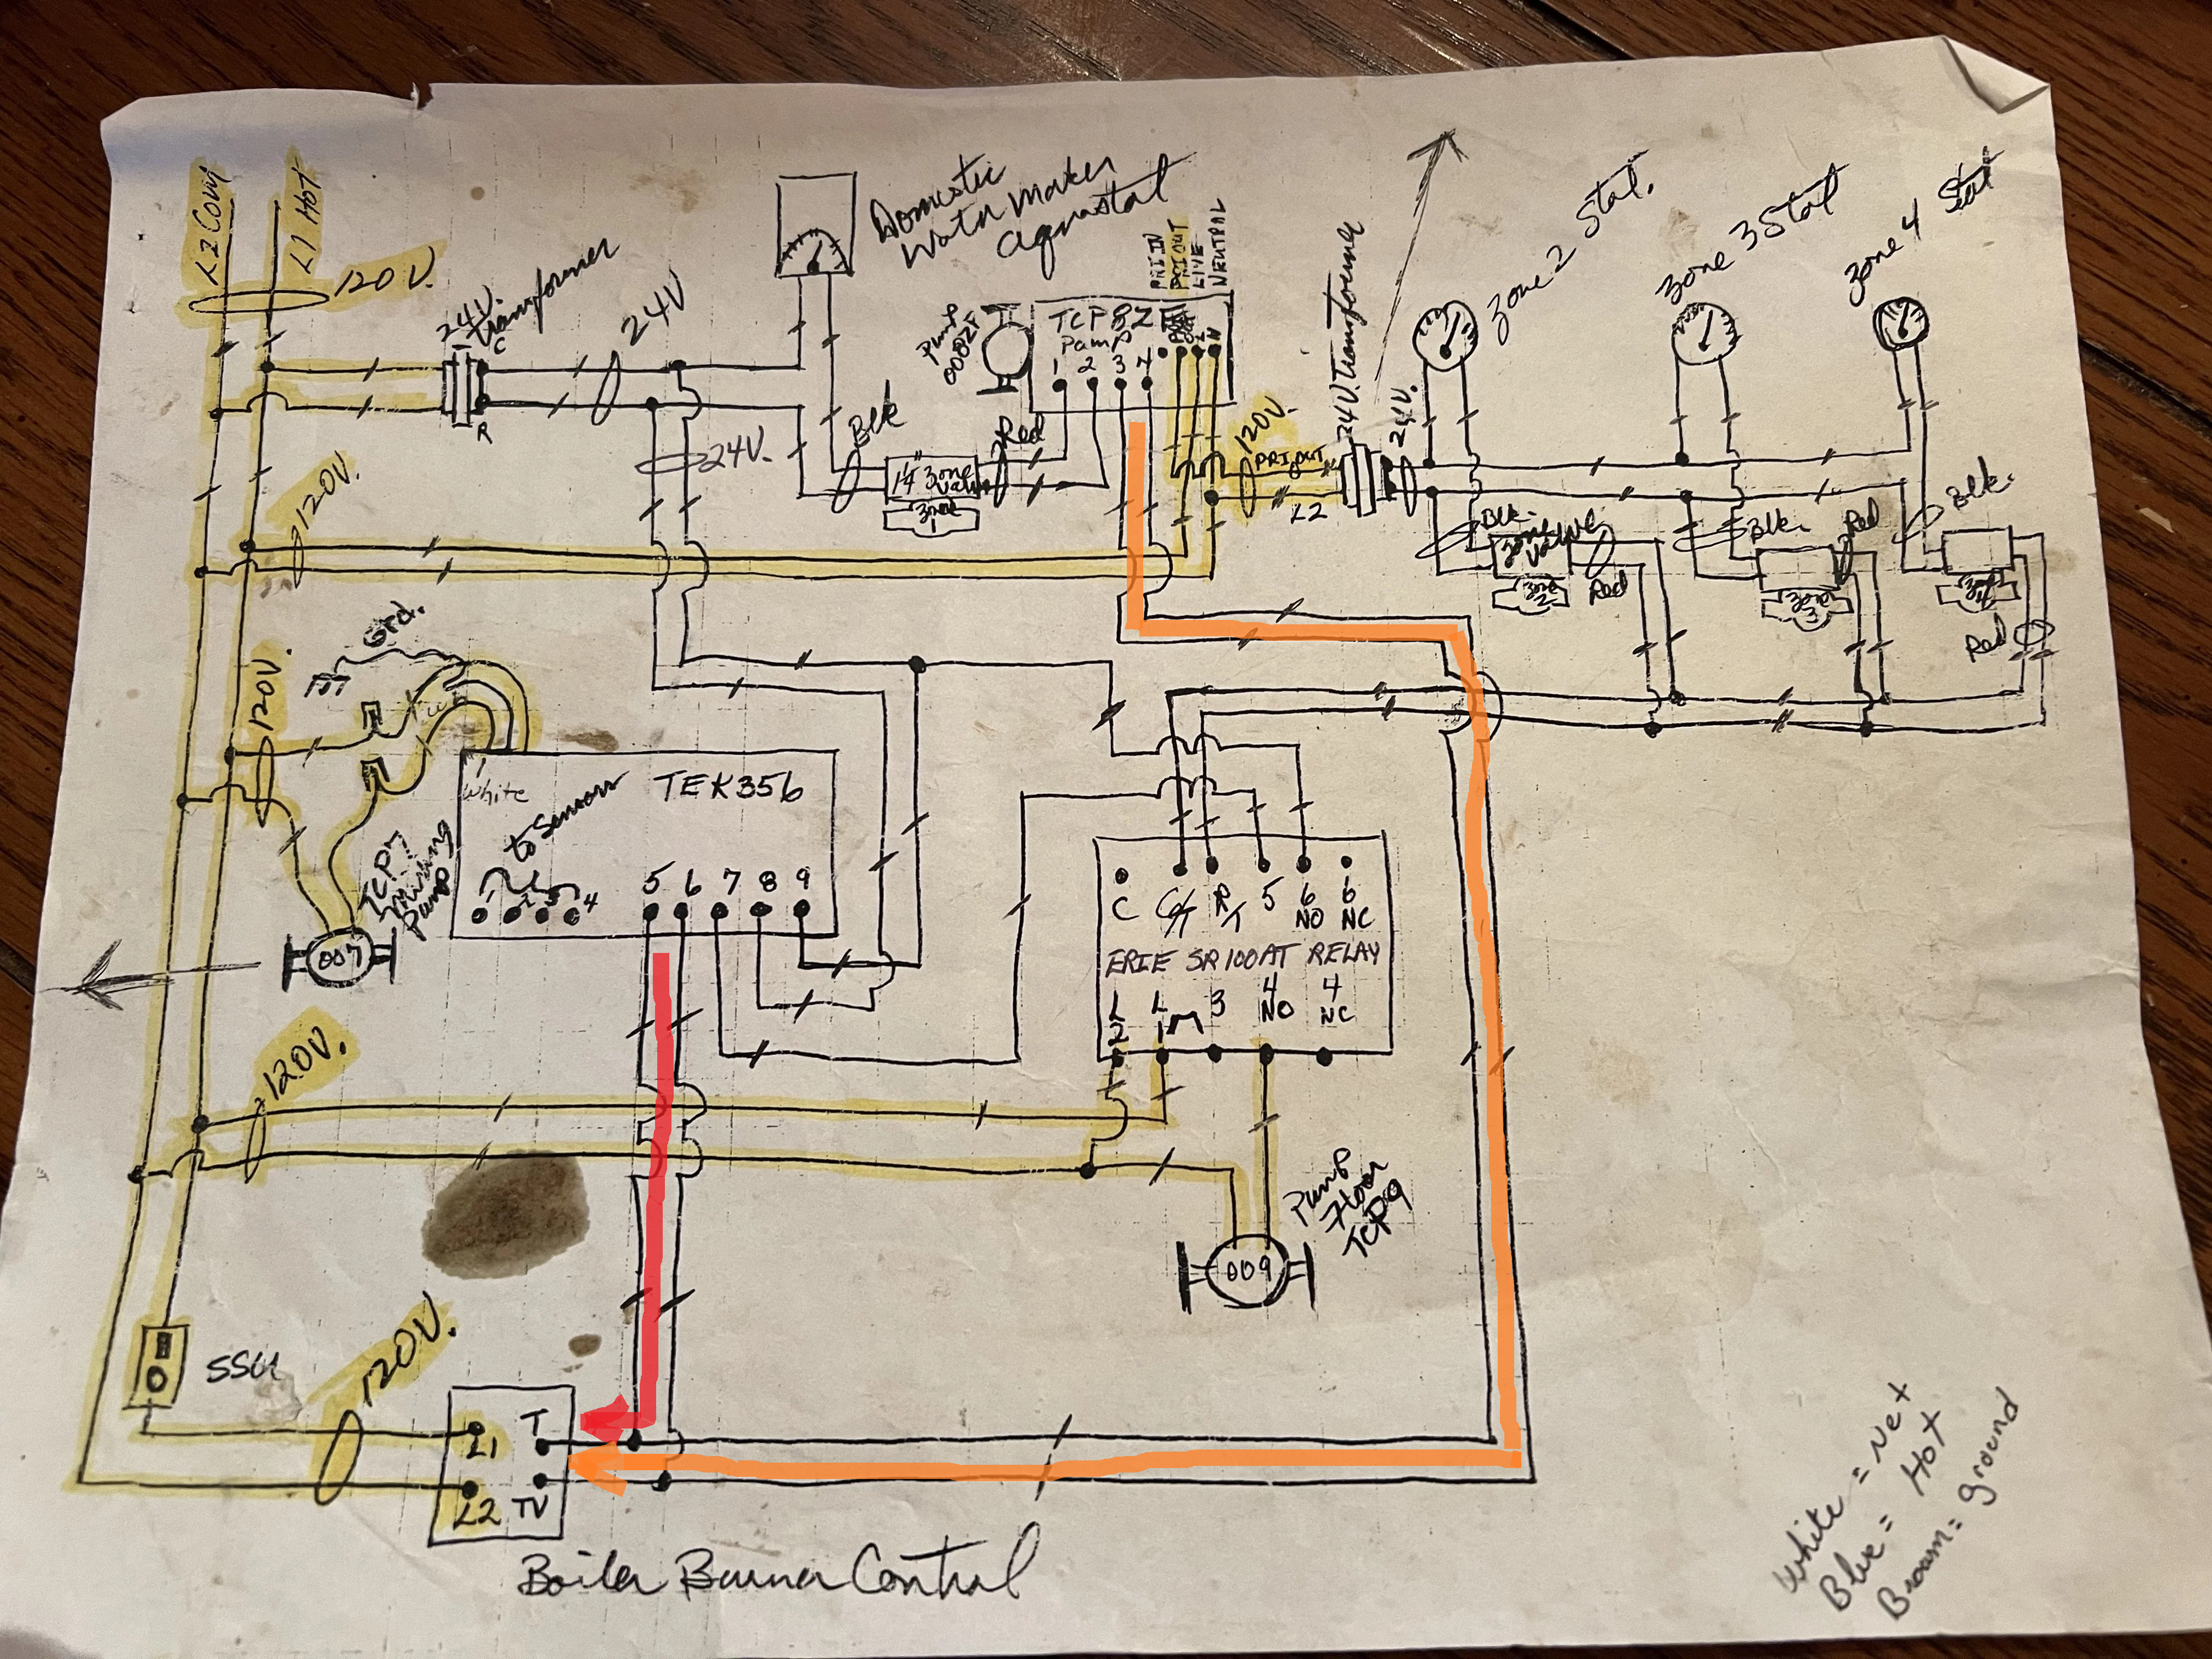 L2 Com
L1 Hot
120V.
24V.
Transformer
C
R
24V
Domestic
Water Maker
Aquastat
PRI IN
PRI OUT
LIVE
NEUTRAL
Pump
0082F
TCP82F
Pump
1 2 3 4
N
24V Transformer
24V.
Zone 2 Stat.
Zone 3 Stat
Zone 4 Stat
120V.
24V.
Blk
Red
1¼" Zone
Valve
Zone
1
120V.
PRI OUT
L2
Blk.
Zone
Valve
Zone
2
Red
Blk.
Red
Zone
3
Blk.
Zone
4
Red
Grd.
120V.
White
to Sensors
TEK356
4
5 6 7 8 9
TCP7
Mixing
Pump
007
C
C/T
R/T
5
6
NO
6
NC
ERIE SR100AT RELAY
L
2
L
1
3
4
NO
4
NC
120V.
Pump
Floor
TCP9
009
SSU
120V.
L1
T
L2
TV
Boiler Burner Control
White = Net
Blue = Hot
Brown = ground